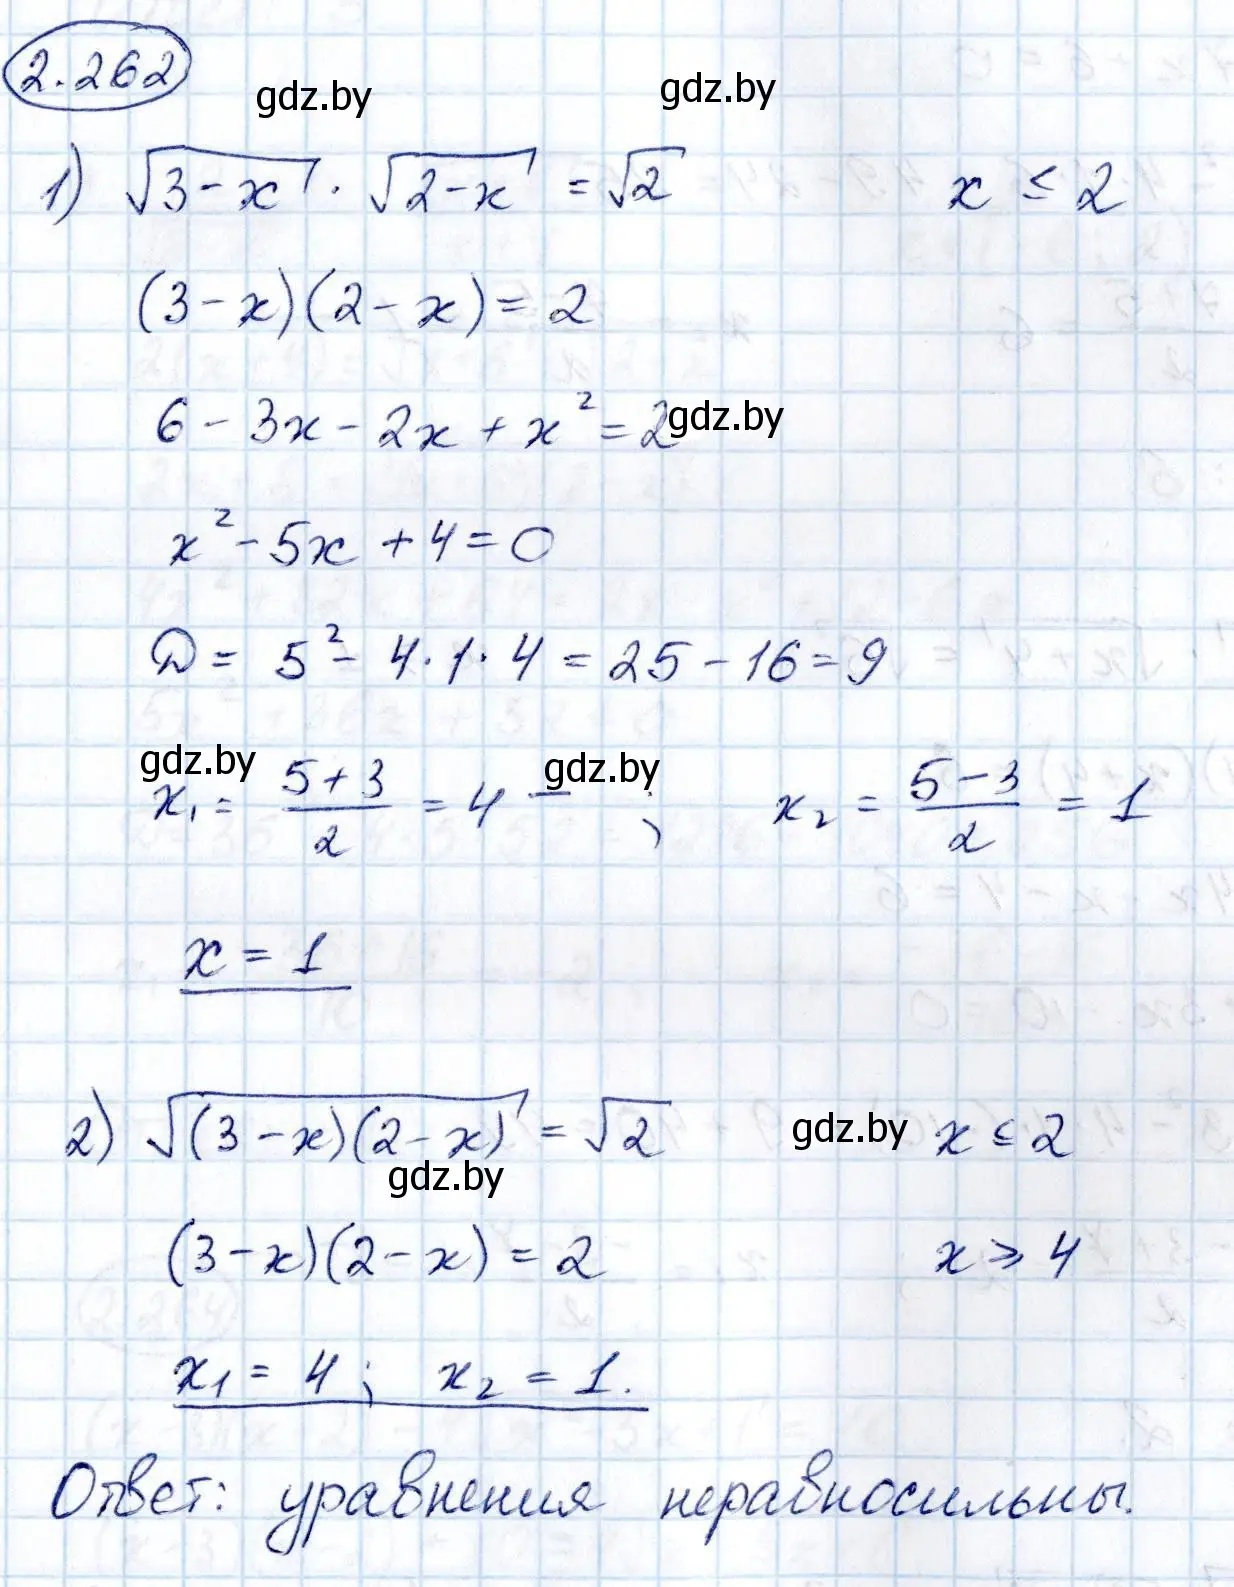 2.262
gdz.by gdz.by
1) √(3-x) · √(2-x) = √2 x ≤ 2
(3-x)(2-x) = 2
6 - 3x - 2x + x² = 2 gdz.by
x² - 5x + 4 = 0
D = 5² - 4·1·4 = 25 - 16 = 9
gdz.by gdz.by
x₁ = (5+3)/2 = 4 – ; x₂ = (5-3)/2 = 1
x = 1
2) √((3-x)(2-x)) = √2 gdz.by x ≤ 2
gdz.by
(3-x)(2-x) = 2 x ≥ 4
x₁ = 4; x₂ = 1.
Ответ: уравнения неравносильны.